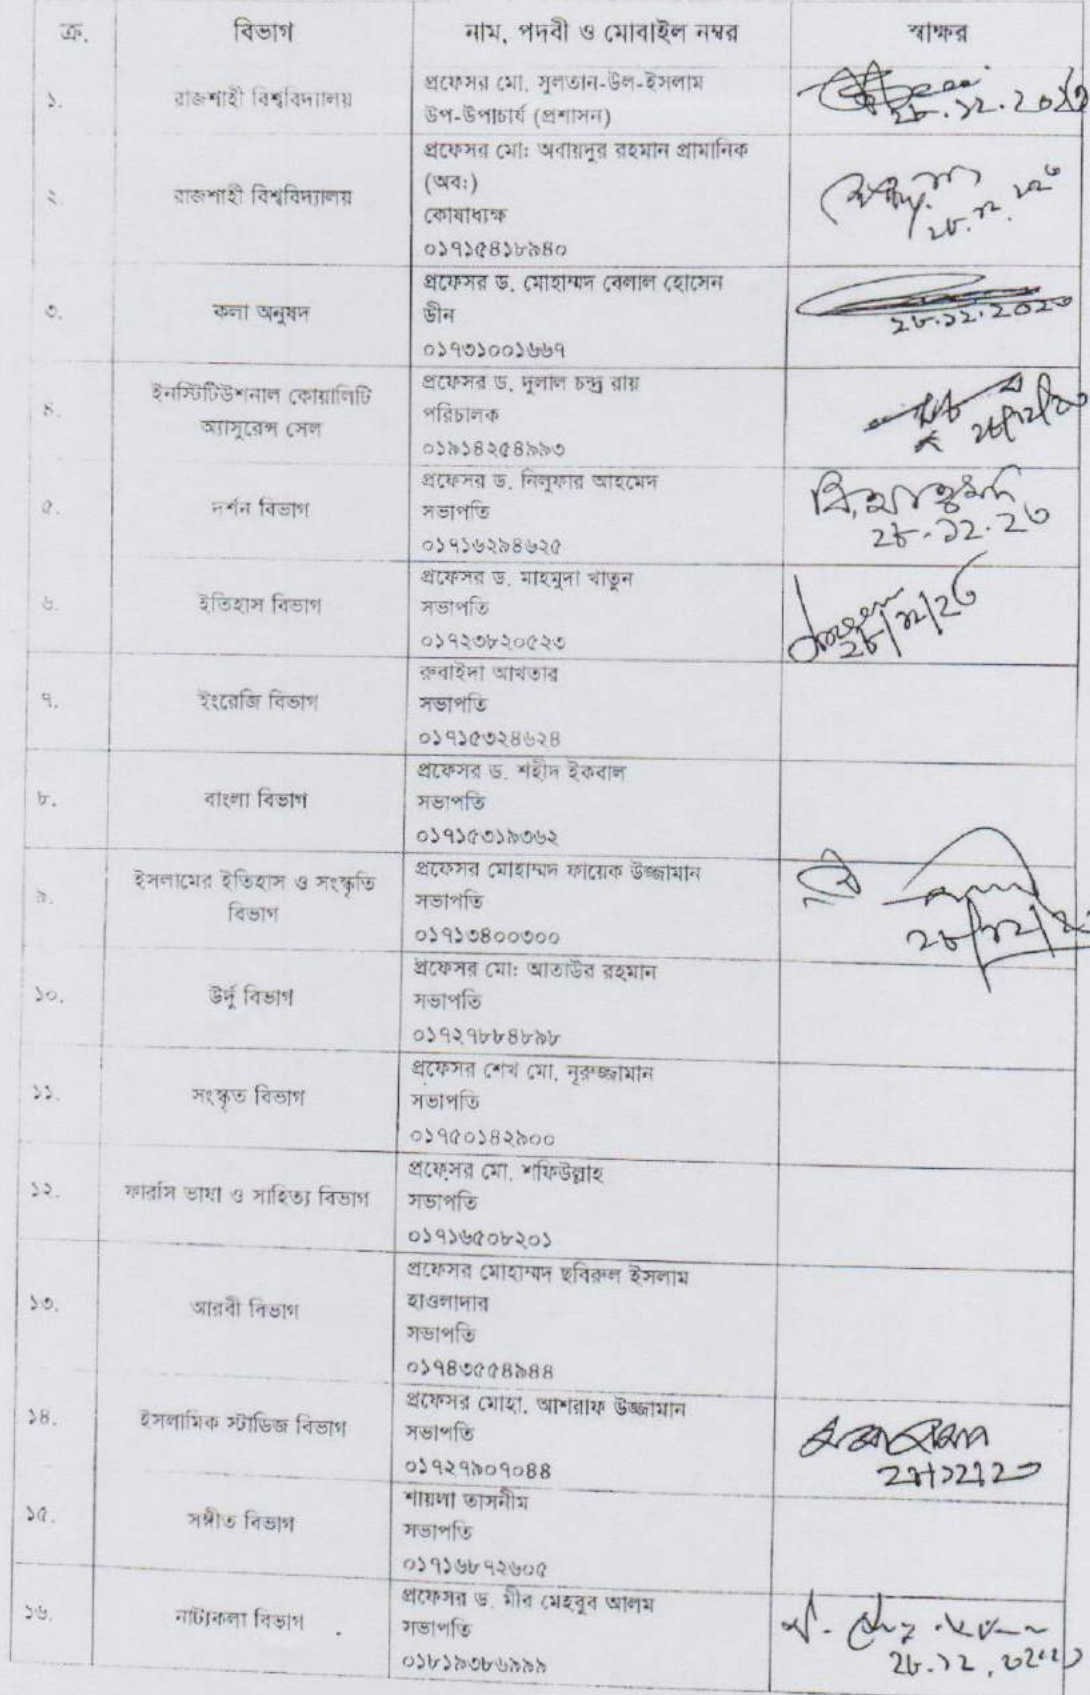 ক্র. বিভাগ নাম, পদবী ও মোবাইল নম্বর স্বাক্ষর
১. রাজশাহী বিশ্ববিদ্যালয় প্রফেসর মো. সুলতান-উল-ইসলাম
উপ-উপাচার্য (প্রশাসন)
২৮.১২.২০২৩
২. রাজশাহী বিশ্ববিদ্যালয় প্রফেসর মো: অবায়দুর রহমান প্রামানিক
(অব:)
কোষাধ্যক্ষ
০১৭১৫৪১৮৯৪০
৩. কলা অনুষদ প্রফেসর ড. মোহাম্মদ বেলাল হোসেন
ডীন
০১৭৩১০০১৬৬৭
২৮.১২.২০২৩
৪. ইনস্টিটিউশনাল কোয়ালিটি
অ্যাসুরেন্স সেল
প্রফেসর ড. দুলাল চন্দ্র রায়
পরিচালক
০১৯১৪২৫৪৯৯৩
২৮/১২/২৩
৫. দর্শন বিভাগ প্রফেসর ড. নিলুফার আহমেদ
সভাপতি
০১৭১৬২৯৪৬২৫
২৮.১২.২৩
৬. ইতিহাস বিভাগ প্রফেসর ড. মাহমুদা খাতুন
সভাপতি
০১৭২৩৮২০৫২৩
২৮/১২/২৩
৭. ইংরেজি বিভাগ রুবাইদা আখতার
সভাপতি
০১৭১৫৩২৪৬২৪
৮. বাংলা বিভাগ প্রফেসর ড. শহীদ ইকবাল
সভাপতি
০১৭১৫৩১৯৩৬২
৯. ইসলামের ইতিহাস ও সংস্কৃতি
বিভাগ
প্রফেসর মোহাম্মদ ফায়েক উজ্জামান
সভাপতি
০১৭১৩৪০০৩০০
১০. উর্দু বিভাগ প্রফেসর মো: আতাউর রহমান
সভাপতি
০১৭২৭৮৮৪৮৯৮
১১. সংস্কৃত বিভাগ প্রফেসর শেখ মো. নূরুজ্জামান
সভাপতি
০১৭৫০১৪২৯০০
১২. ফারসি ভাষা ও সাহিত্য বিভাগ প্রফেসর মো. শফিউল্লাহ
সভাপতি
০১৭১৬৫০৮২০১
১৩. আরবী বিভাগ প্রফেসর মোহাম্মদ ছবিরুল ইসলাম
হাওলাদার
সভাপতি
০১৭৪৩৫৫৪৯৪৪
১৪. ইসলামিক স্টাডিজ বিভাগ প্রফেসর মোহা. আশরাফ উজ্জামান
সভাপতি
০১৭২৭৯০৭০৪৪
১৫. সঙ্গীত বিভাগ শায়লা তাসনীম
সভাপতি
০১৭১৬৮৭২৬০৫
১৬. নাট্যকলা বিভাগ প্রফেসর ড. মীর মেহবুব আলম
সভাপতি
০১৮১৯৩৮৬৯৯৯